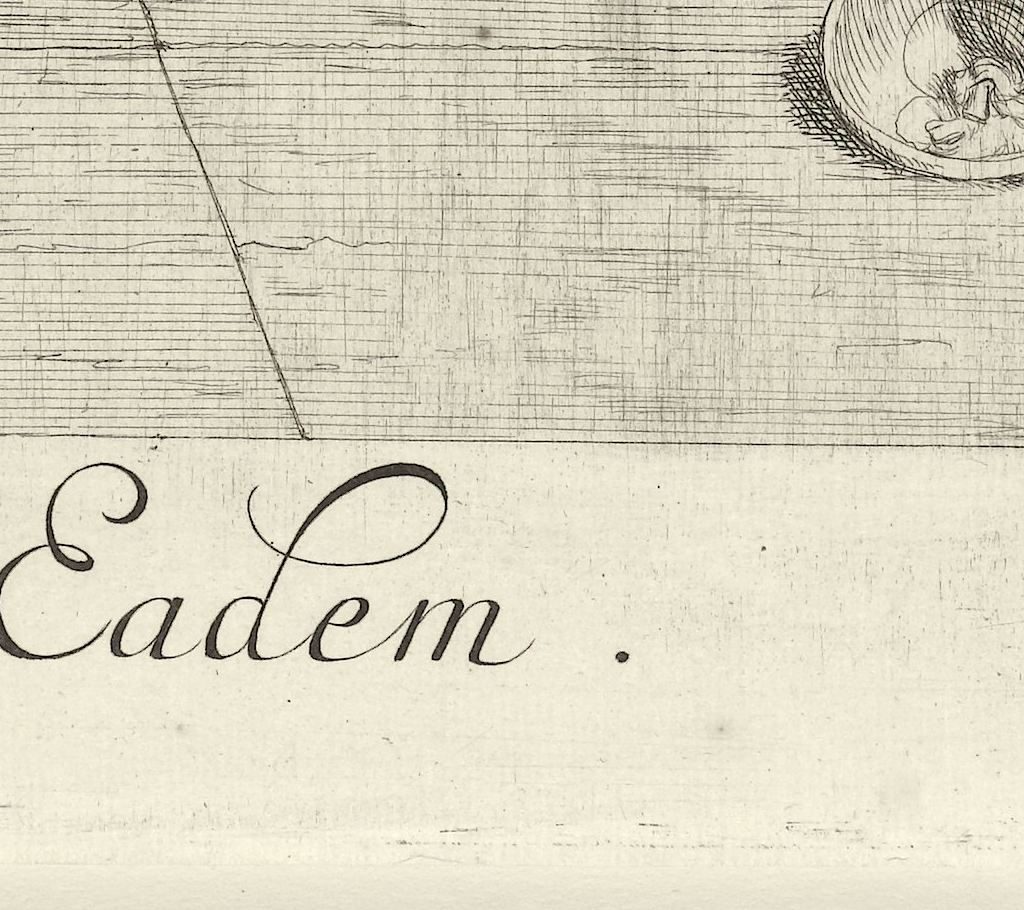 Eadem .